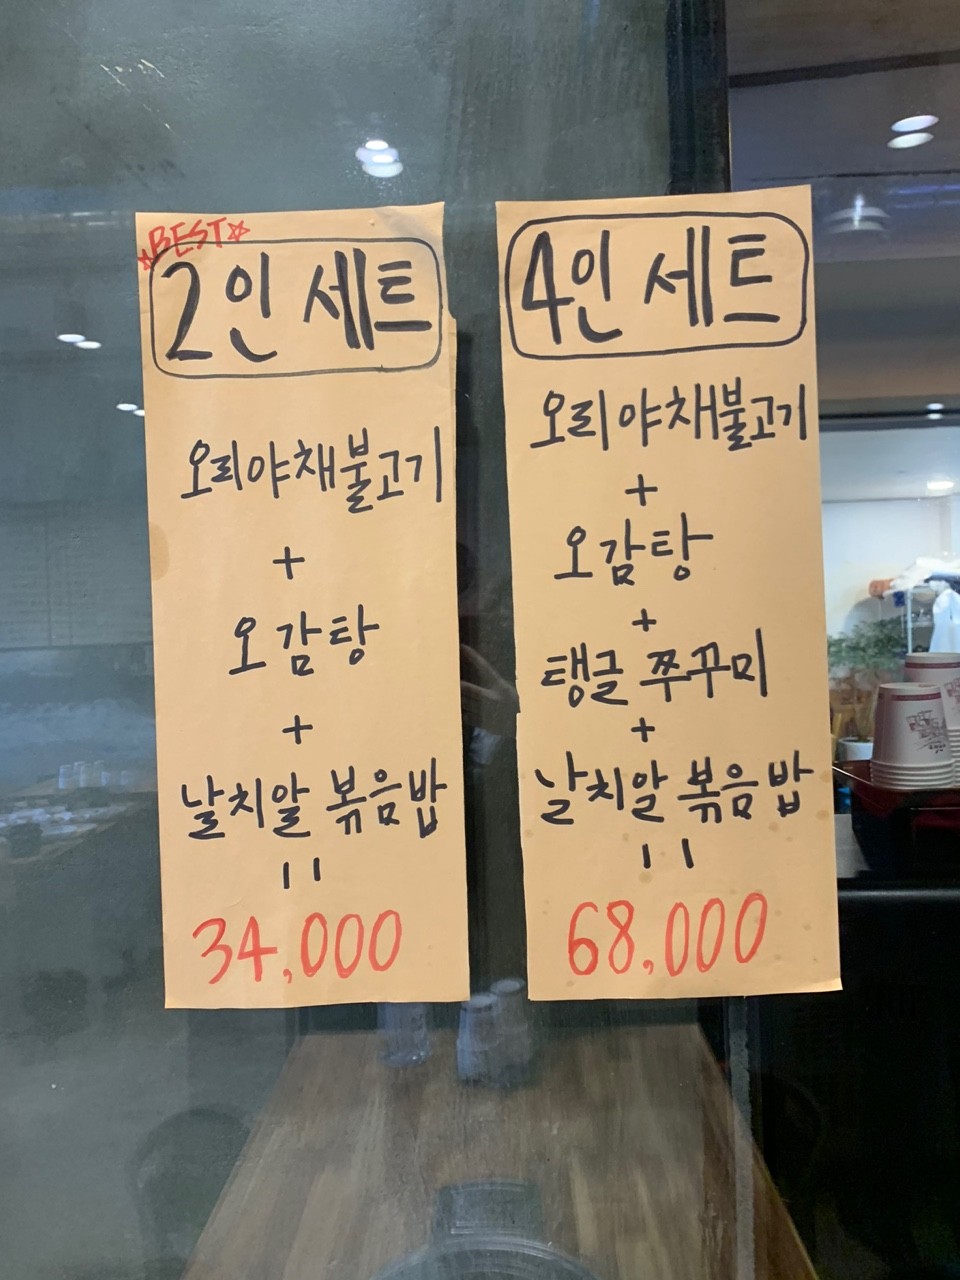 ☆BEST☆
2인 세트
오리야채불고기
+
오감탕
+
날치알 볶음밥
=
34,000
4인 세트
오리야채불고기
+
오감탕
+
탱글 쭈꾸미
+
날치알 볶음밥
=
68,000